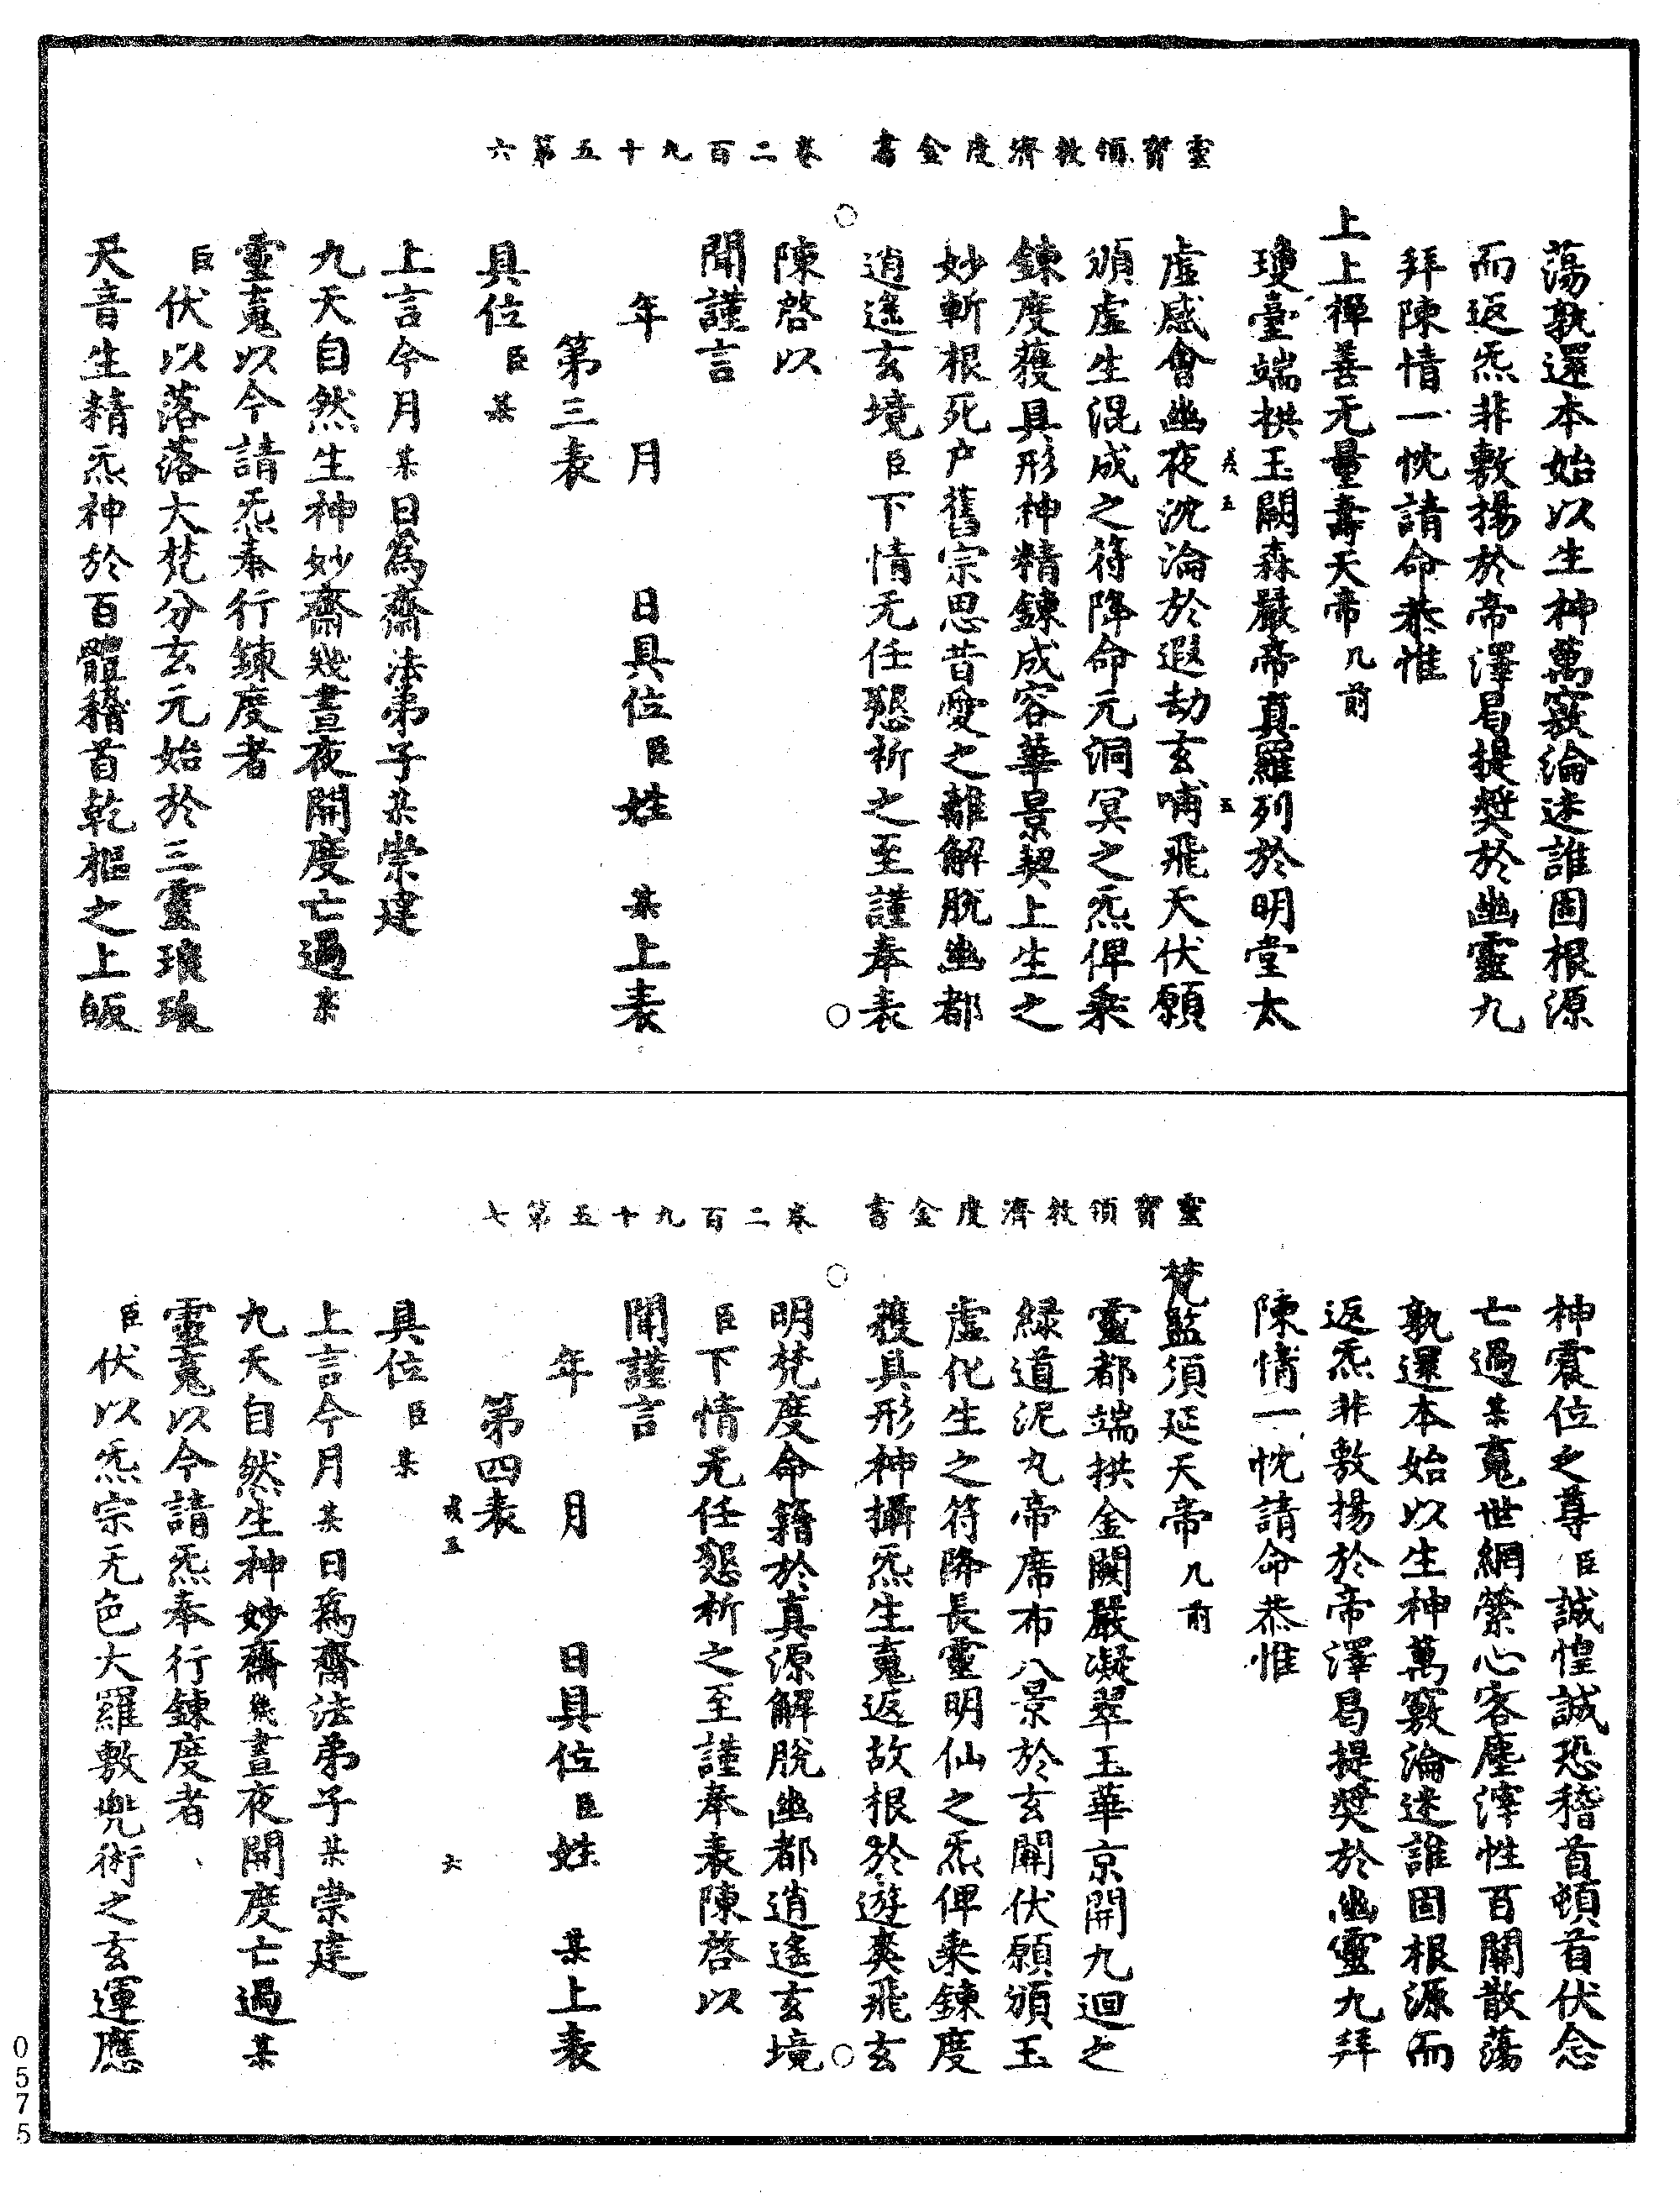 靈寶領教濟度金書　卷二百九十五第六
蕩孰還本始以生神萬竅淪迷誰固根源
而返炁非敷揚於帝澤曷提奬於幽靈九
拜陳情一忱請命恭惟
上上禪善无量壽天帝几前
瓊臺端栱玉闕森嚴帝真羅列於明堂太
虛感會幽夜沈淪於遐劫玄哺飛天伏願
頒虛生混成之符降命元洞冥之炁俾乘
鍊度獲具形神精鍊成容華景契上生之
妙斬根死户舊宗思昔愛之離解脱幽都
逍遙玄境臣下情无任懇祈之至謹奉表
陳啓以
聞謹言
年　月　日具位臣姓　某上表
第三表
具位臣某
上言今月某日爲齋法弟子某崇建
九天自然生神妙齋幾晝夜開度亡過某
靈䰟以今請炁奉行鍊度者
臣伏以落落大梵分玄元始於三靈琅琅
天音生精炁神於百體稽首乾樞之上皈
靈寶領教濟度金書　卷二百九十五第七
神震位之尊臣誠惶誠恐稽首頓首伏念
亡過某䰟世網縈心客塵滓性百關散蕩
孰還本始以生神萬竅淪迷誰固根源而
返炁非敷揚於帝澤曷提奬於幽靈九拜
陳情一忱請命恭惟
梵監須延天帝几前
靈都端拱金闕嚴凝翠玉華京開九迴之
緑道泥丸帝席布八景於玄關伏願頒玉
虛化生之符降長靈明仙之炁俾乘鍊度
獲具形神攝炁生䰟返故根於遊爽飛玄
明梵度命籍於真源解脱幽都逍遙玄境
臣下情无任懇祈之至謹奉表陳啓以
聞謹言
年　月　日具位臣姓　某上表
第四表
具位臣某
上言今月某日爲齋法弟子某崇建
九天自然生神妙齋幾晝夜開度亡過某
靈䰟以今請炁奉行鍊度者
臣伏以炁宗无色大羅敷兜術之玄運應
0575